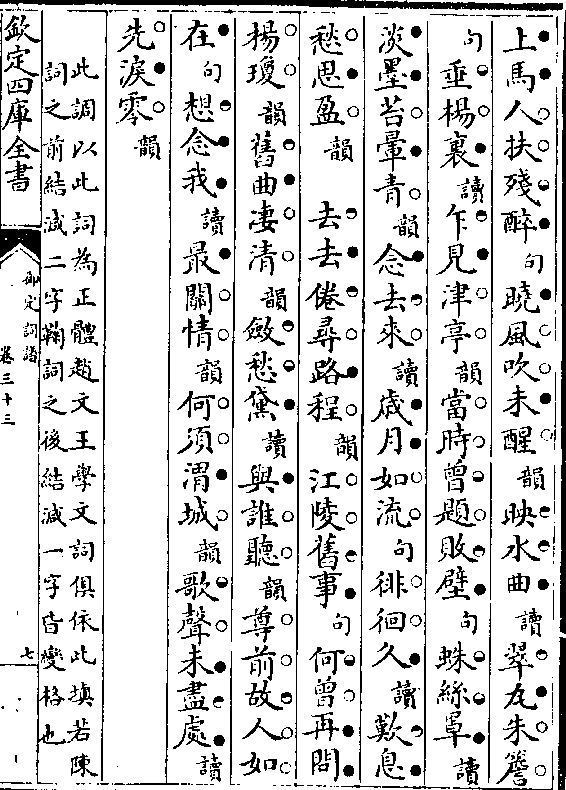 上馬人扶殘醉句曉風吹未醒韻映水曲讀翠瓦朱簷
句垂楊裏讀乍見津亭韻當時曾題敗壁句蛛絲罩讀
淡墨苔暈青韻念去來讀歲月如流句徘徊久讀歎息
愁思盈韻 去去倦尋路程韻江陵舊事句何曾再問
楊瓊韻舊曲凄清韻斂愁黛讀與誰聽韻尊前故人如
在句想念我讀最關情韻何須渭城韻歌聲未盡處讀
先淚零韻
此調以此詞為正體趙文王學文詞俱依此填若陳
詞之前結減二字鞠詞之後結減一字皆變格也
欽定四庫全書
御定詞譜
卷三十三
七